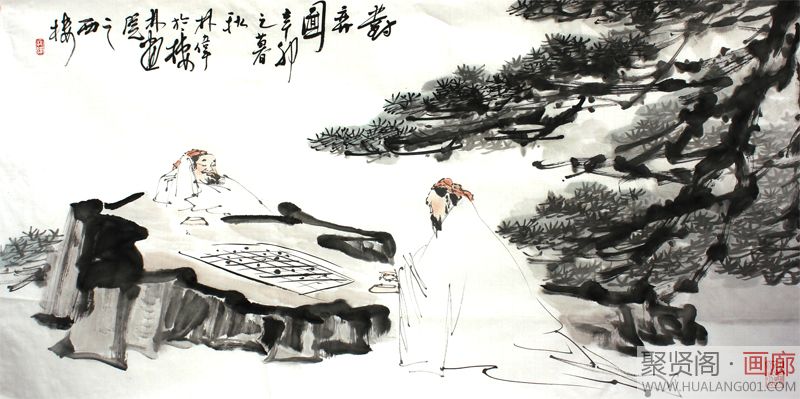 對弈圖
辛卯
之暮
秋
朴偉
於
林畫
院
之
西
樓
聚贤阁·画廊
WWW.HUALANG001.COM